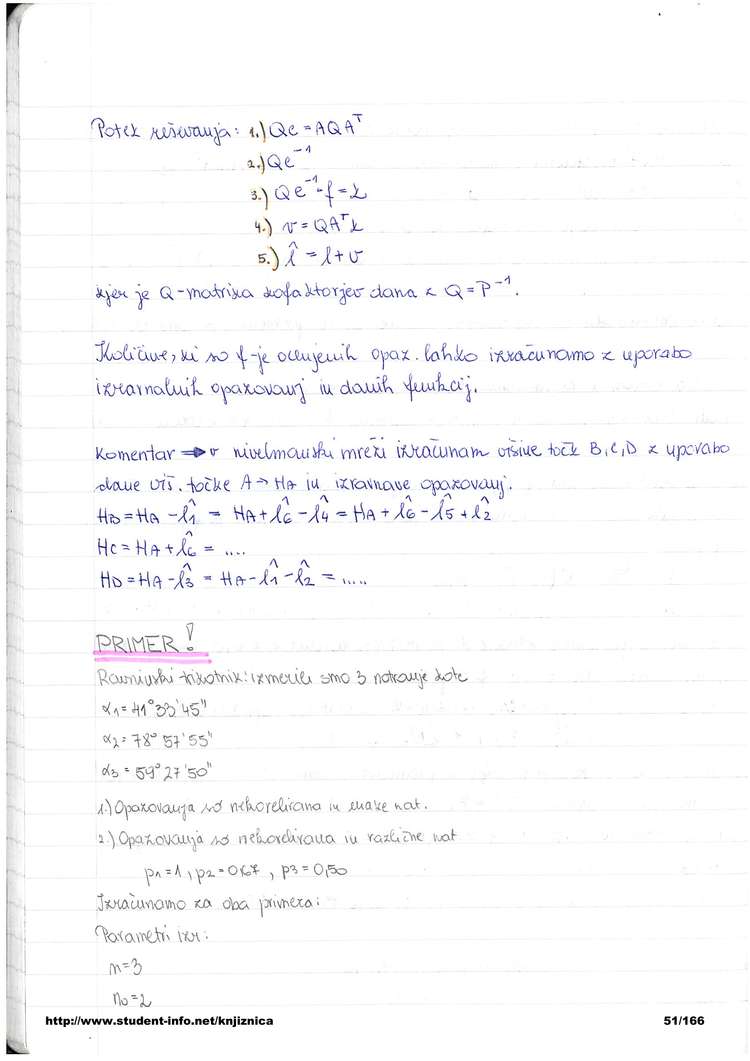 Potek reševanja: 1.) Qe = AQAᵀ
2.) Qe⁻¹
3.) Qe⁻¹·f = k
4.) v = QAᵀk
5.) l̂ = l + v
kjer je Q-matrika kofaktorjev dana z Q = P⁻¹.
Količine, ki so f-je ocenjenih opaz. lahko izračunamo z uporabo
izravnalnih opazovanj in danih funkcij.
Komentar ⇒ v nivelmanski mreži izračunam višine točk B, C, D z uporabo
dane viš. točke A → HA in izravnave opazovanj.
HB = HA - l̂1 = HA + l̂6 - l̂4 = HA + l̂6 - l̂5 + l̂2
HC = HA + l̂6 = ....
HD = HA - l̂3 = HA - l̂1 - l̂2 = .....
PRIMER!
Ravninski trikotnik: izmerili smo 3 notranje kote
α1 = 41° 33' 45"
α2 = 78° 57' 55"
α3 = 59° 27' 50"
1.) Opazovanja so nekorelirana in enake nat.
2.) Opazovanja so nekorelirana in različne nat
p1 = 1, p2 = 0,67, p3 = 0,50
Izračunamo za oba primera:
Parametri izr:
n = 3
n0 = 2
http://www.student-info.net/knjiznica
51/166